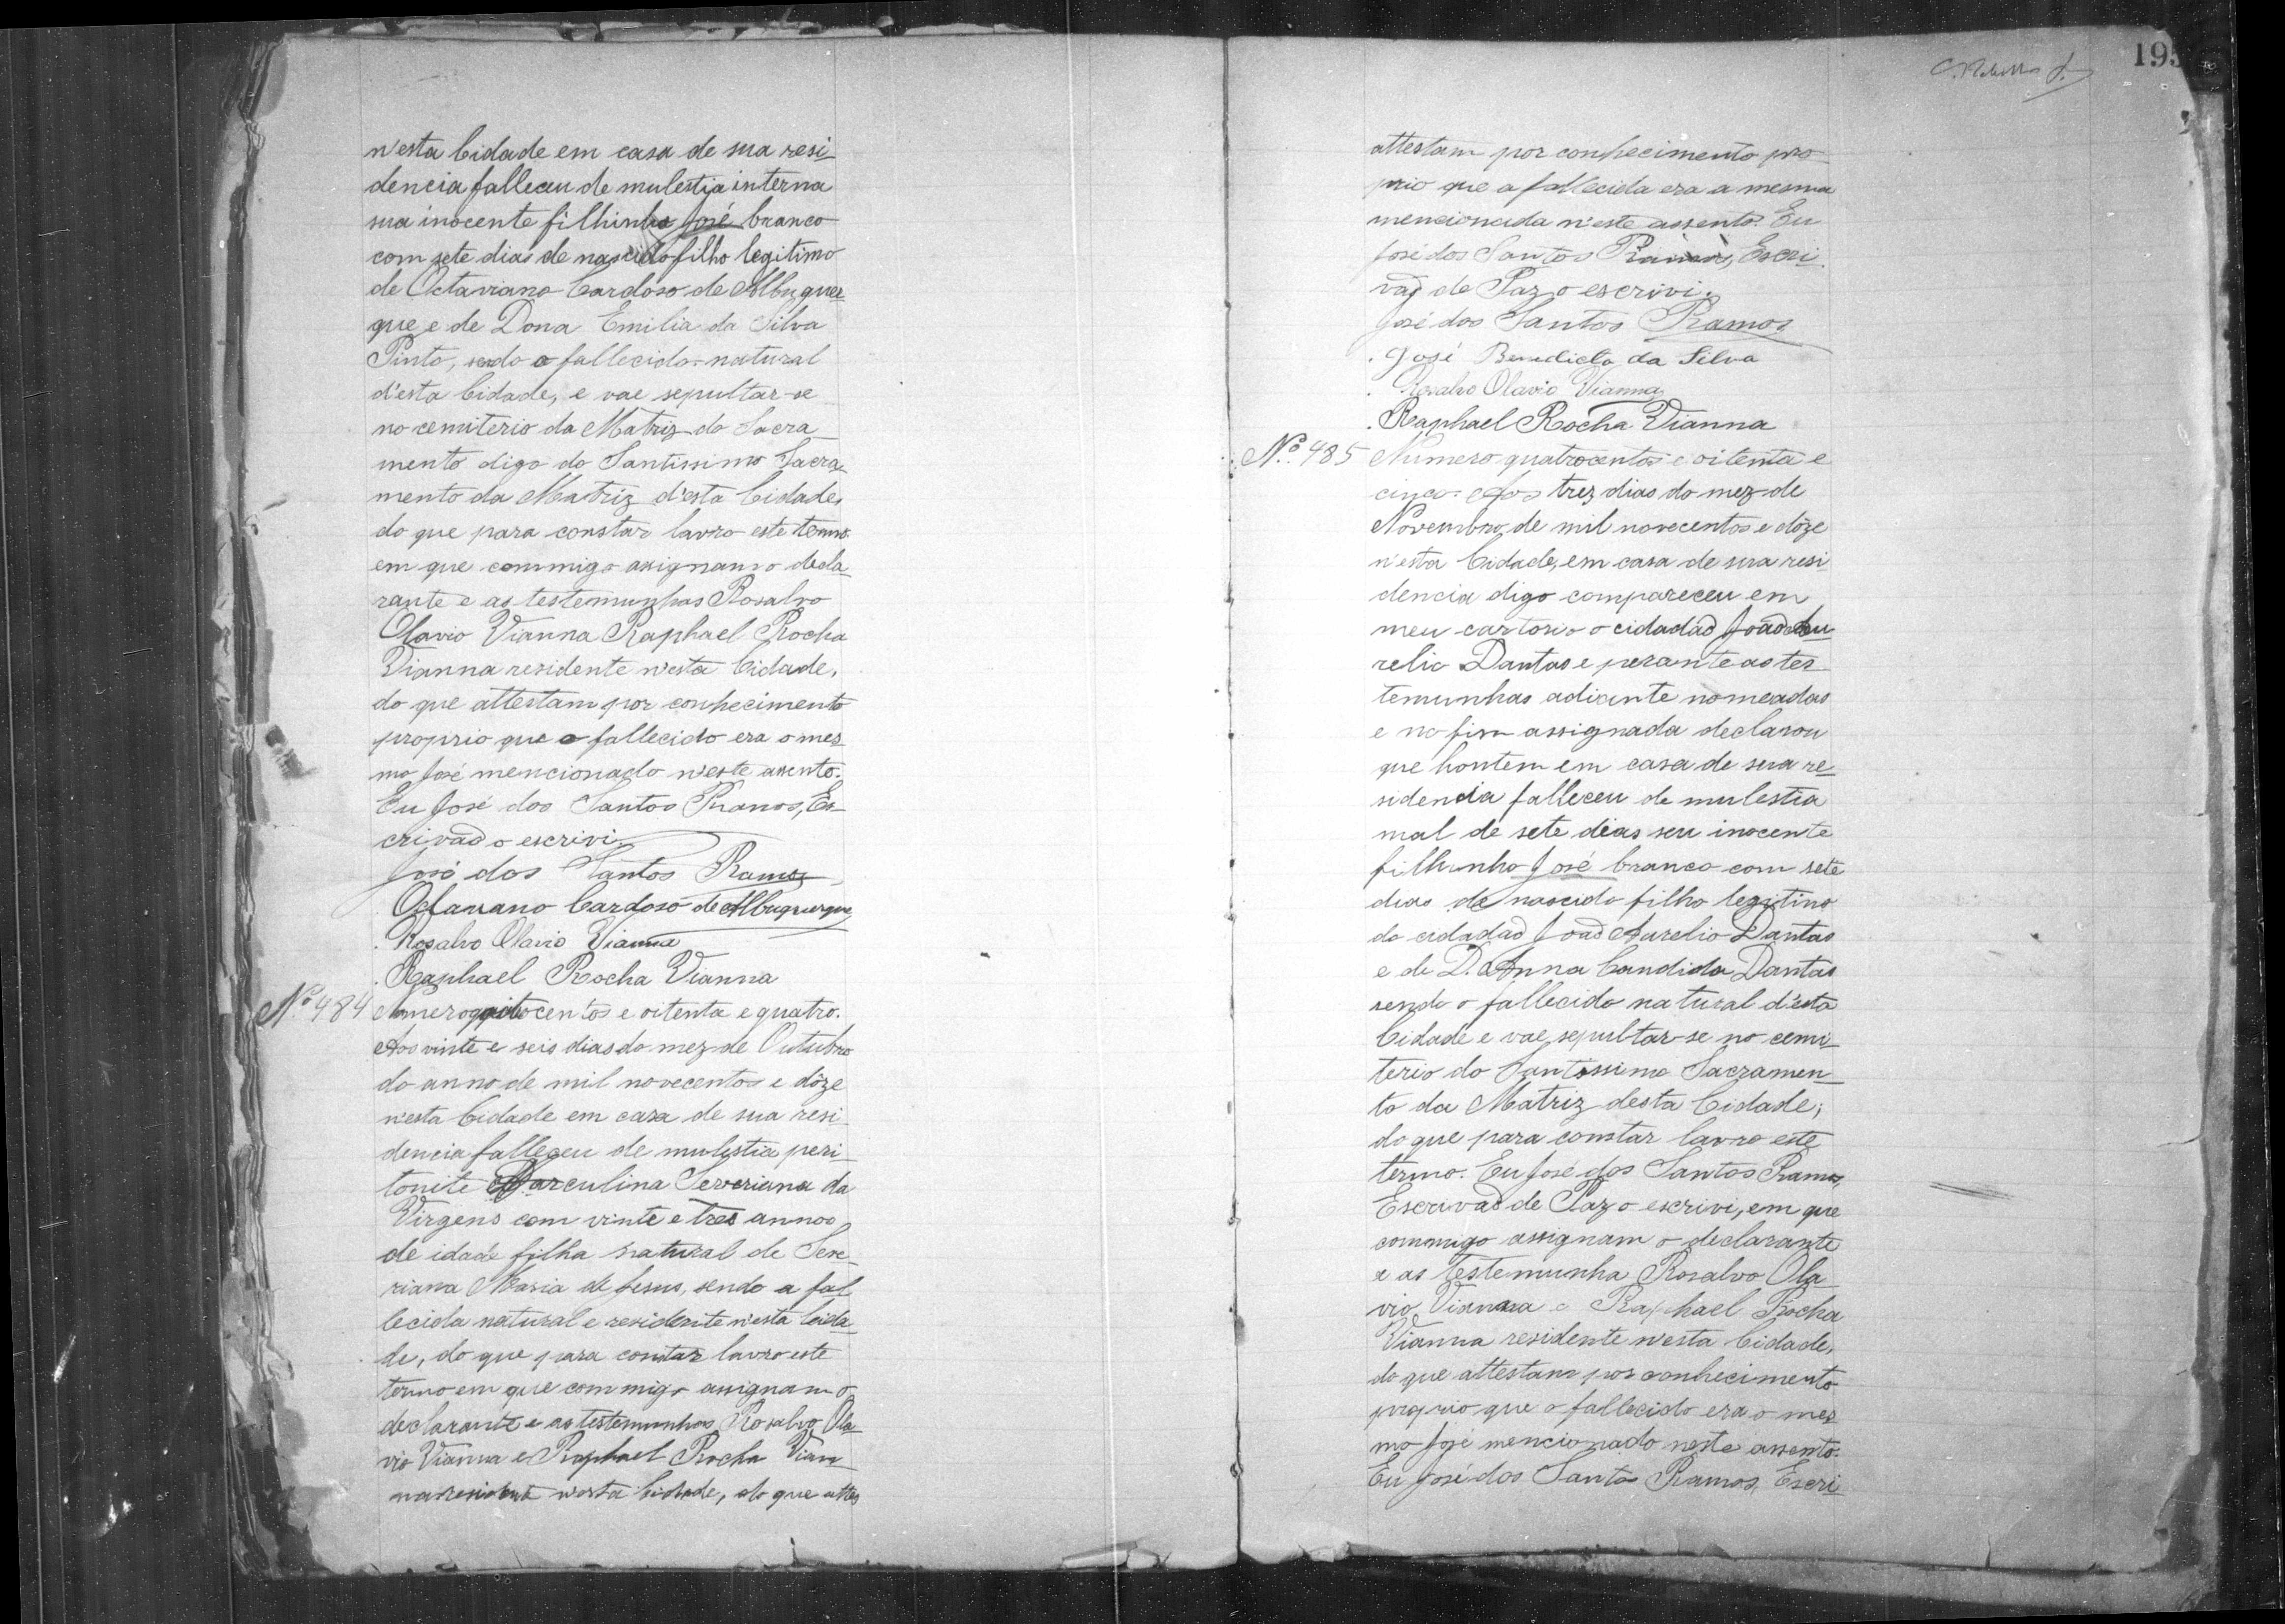 n'esta Cidade em casa de sua resi-
dencia falleceu de mulestia interna
sua inocente filhinho José branco
com sete dias de nascido filho legitimo
de Octaviano Cardoso de Albuquer-
que e de Dona Emilia da Silva
Pinto, sendo o fallecido natural
d'esta Cidade, e vae sepultar-se
no cemiterio da Matriz do Sacra-
mento digo do Santissimo Sacra-
mento da Matriz d'esta Cidade,
do que para constar lavro este termo
em que commigo assignam o decla-
rante e as testemunhas Rosalvo
Olavio Vianna Raphael Rocha
Vianna residente n'esta Cidade,
do que attestam por conhecimento
proprio que o fallecido era o mes-
mo José mencionado n'este assento.
Eu José dos Santos Ramos, Es-
crivaõ o escrivi.
José dos Santos Ramos
Octaviano Cardoso de Albuquerque
Rosalvo Olavio Vianna
Raphael Rocha Vianna
Nº 484 Numero quatrocentos e oitenta e quatro.
Aos vinte e seis dias do mez de Outubro
do anno de mil novecentos e dôze
n'esta Cidade em casa de sua resi-
dencia falleceu de mulestia peri-
tonite Marculina Severiana da
Virgens com vinte e tres annos
de idade filha natural de Seve-
riana Maria de Jesus, sendo a fal-
lecida natural e residente n'esta Cida-
de, do que para constar lavro este
termo em que commigo assignam o
declarante e as testemunhas Rosalvo Ola-
vio Vianna e Raphael Rocha Vian-
na residente n'esta Cidade, do que attes
195
attestam por conhecimento pro-
prio que a fallecida era a mesma
mencionada n'este assento. Eu
José dos Santos Ramos, Escri-
vaõ de Paz o escrivi.
José dos Santos Ramos
José Benedicto da Silva
Rosalvo Olavio Vianna
Raphael Rocha Vianna
Nº 485 Numero quatrocentos e oitenta e
cinco. Aos trez dias do mez de
Novembro de mil novecentos e dôze
n'esta Cidade, em casa de sua resi-
dencia digo compareceu em
meu cartorio o cidadaõ Joaõ Au-
relio Dantas e perante as tes-
temunhas adiante nomeadas
e no fim assignada declarou
que hontem em casa de sua re-
sidencia falleceu de mulestia
mal de sete dias seu inocente
filhinho José branco com sete
dias de nascido filho legitimo
do cidadaõ Joaõ Aurelio Dantas
e de D. Anna Candida Dantas
sendo o fallecido natural d'esta
Cidade e vae sepultar-se no cemi-
terio do Santissimo Sacramen-
to da Matriz desta Cidade;
do que para constar lavro este
termo. Eu José dos Santos Ramos,
Escrivaõ de Paz o escrivi, em que
commigo assignam o declarante
e as testemunha Rosalvo Ola-
vio Vianna e Raphael Rocha
Vianna residente n'esta Cidade,
do que attestam por conhecimento
proprio que o fallecido era o mes-
mo José mencionado neste assento.
Eu José dos Santos Ramos, Escri-